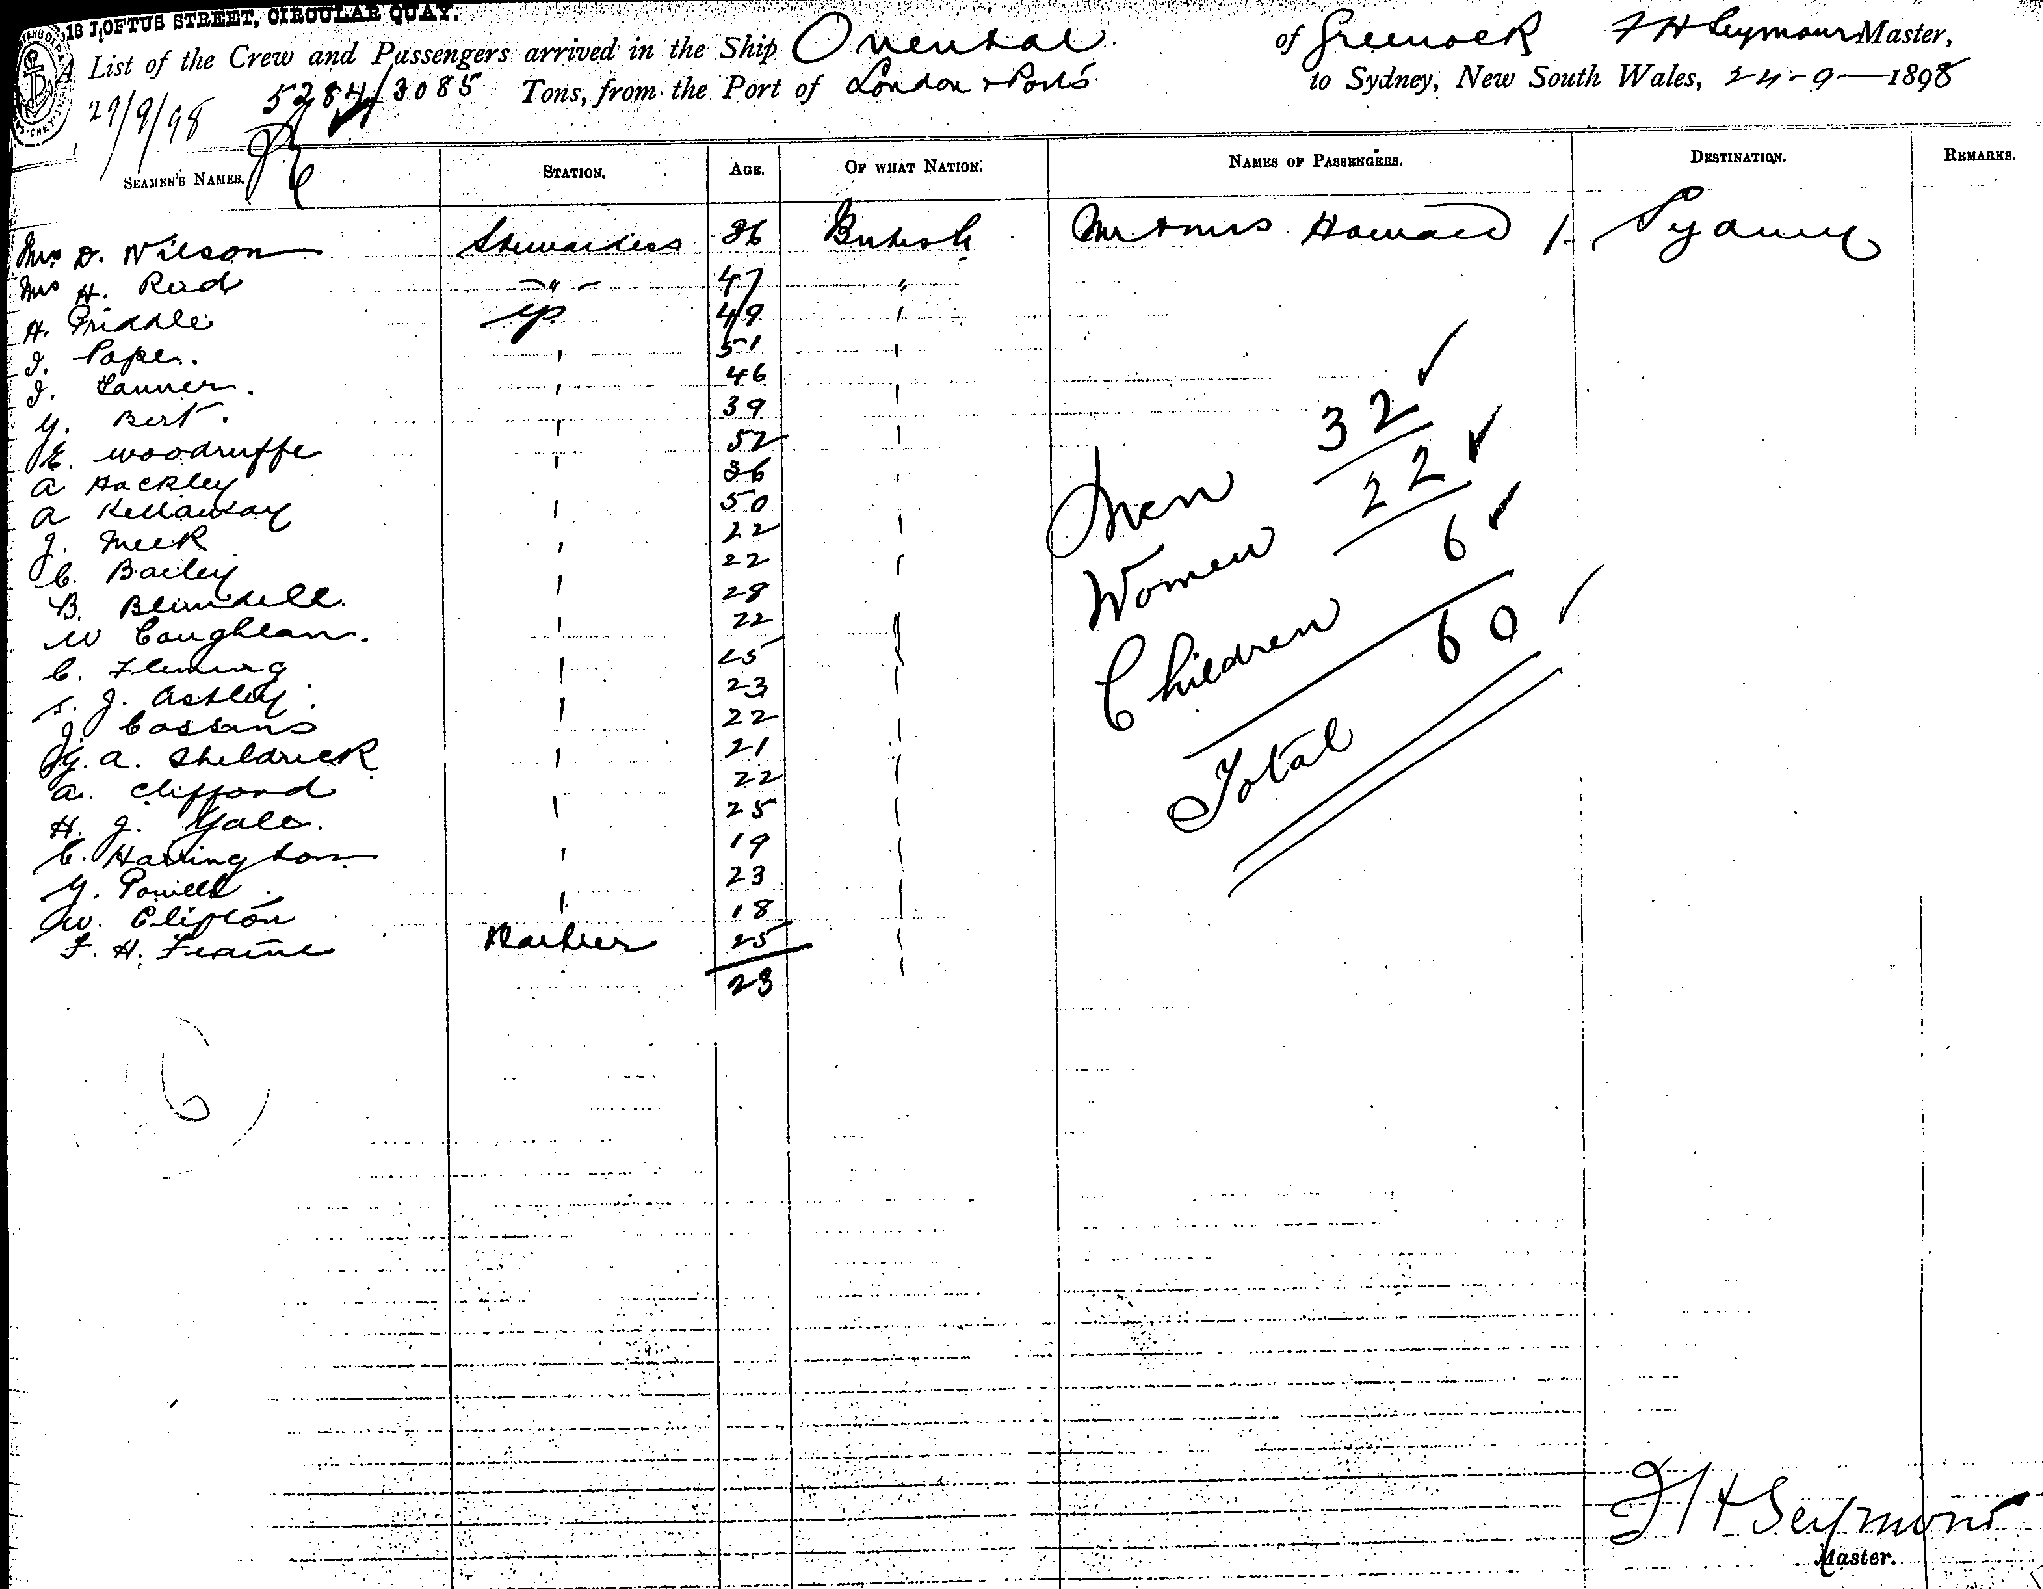 18 LOFTUS STREET, CIRCULAR QUAY.
A List of the Crew and Passengers arrived in the Ship Oriental of Greenock F H Seymour Master,
5284/3085 Tons, from the Port of London & Ports to Sydney, New South Wales, 24-9-1898
29/9/98
SEAMEN'S NAMES. STATION. AGE. OF WHAT NATION. NAMES OF PASSENGERS. DESTINATION. REMARKS.
Mrs D. Wilson Stewardess 36 British Mr & Mrs Howard 1. Sydney
Mrs H. Reid " 47 "
H. Priddle 49
J. Pape. 51
J. Tanner. 46
G. Bert. 39
E. Woodruffe 52
A Hackley 36
A Kellaway 50
J. Meek 22
C. Bailey 22
B. Blundell. 28
W Coughlan. 22
C. Fleming 25
S. J. Astley. 23
J. Cossans 22
G. A. Sheldrick 21
A. Clifford 22
H. J. Gale. 25
C. Harrington 19
G. Powell 23
W. Clifton 18
F. H. Frame Barber 25
23
Men 32
Women 22
Children 6
Total 60
F H Seymour
Master.